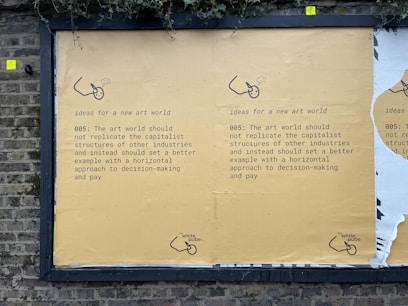 ideas for a new art world
005: The art world should
not replicate the capitalist
structures of other industries
and instead should set a better
example with a horizontal
approach to decision-making
and pay
the
white
pube
ideas for a new art world
005: The art world should
not replicate the capitalist
structures of other industries
and instead should set a better
example with a horizontal
approach to decision-making
and pay
the
white
pube
ideas